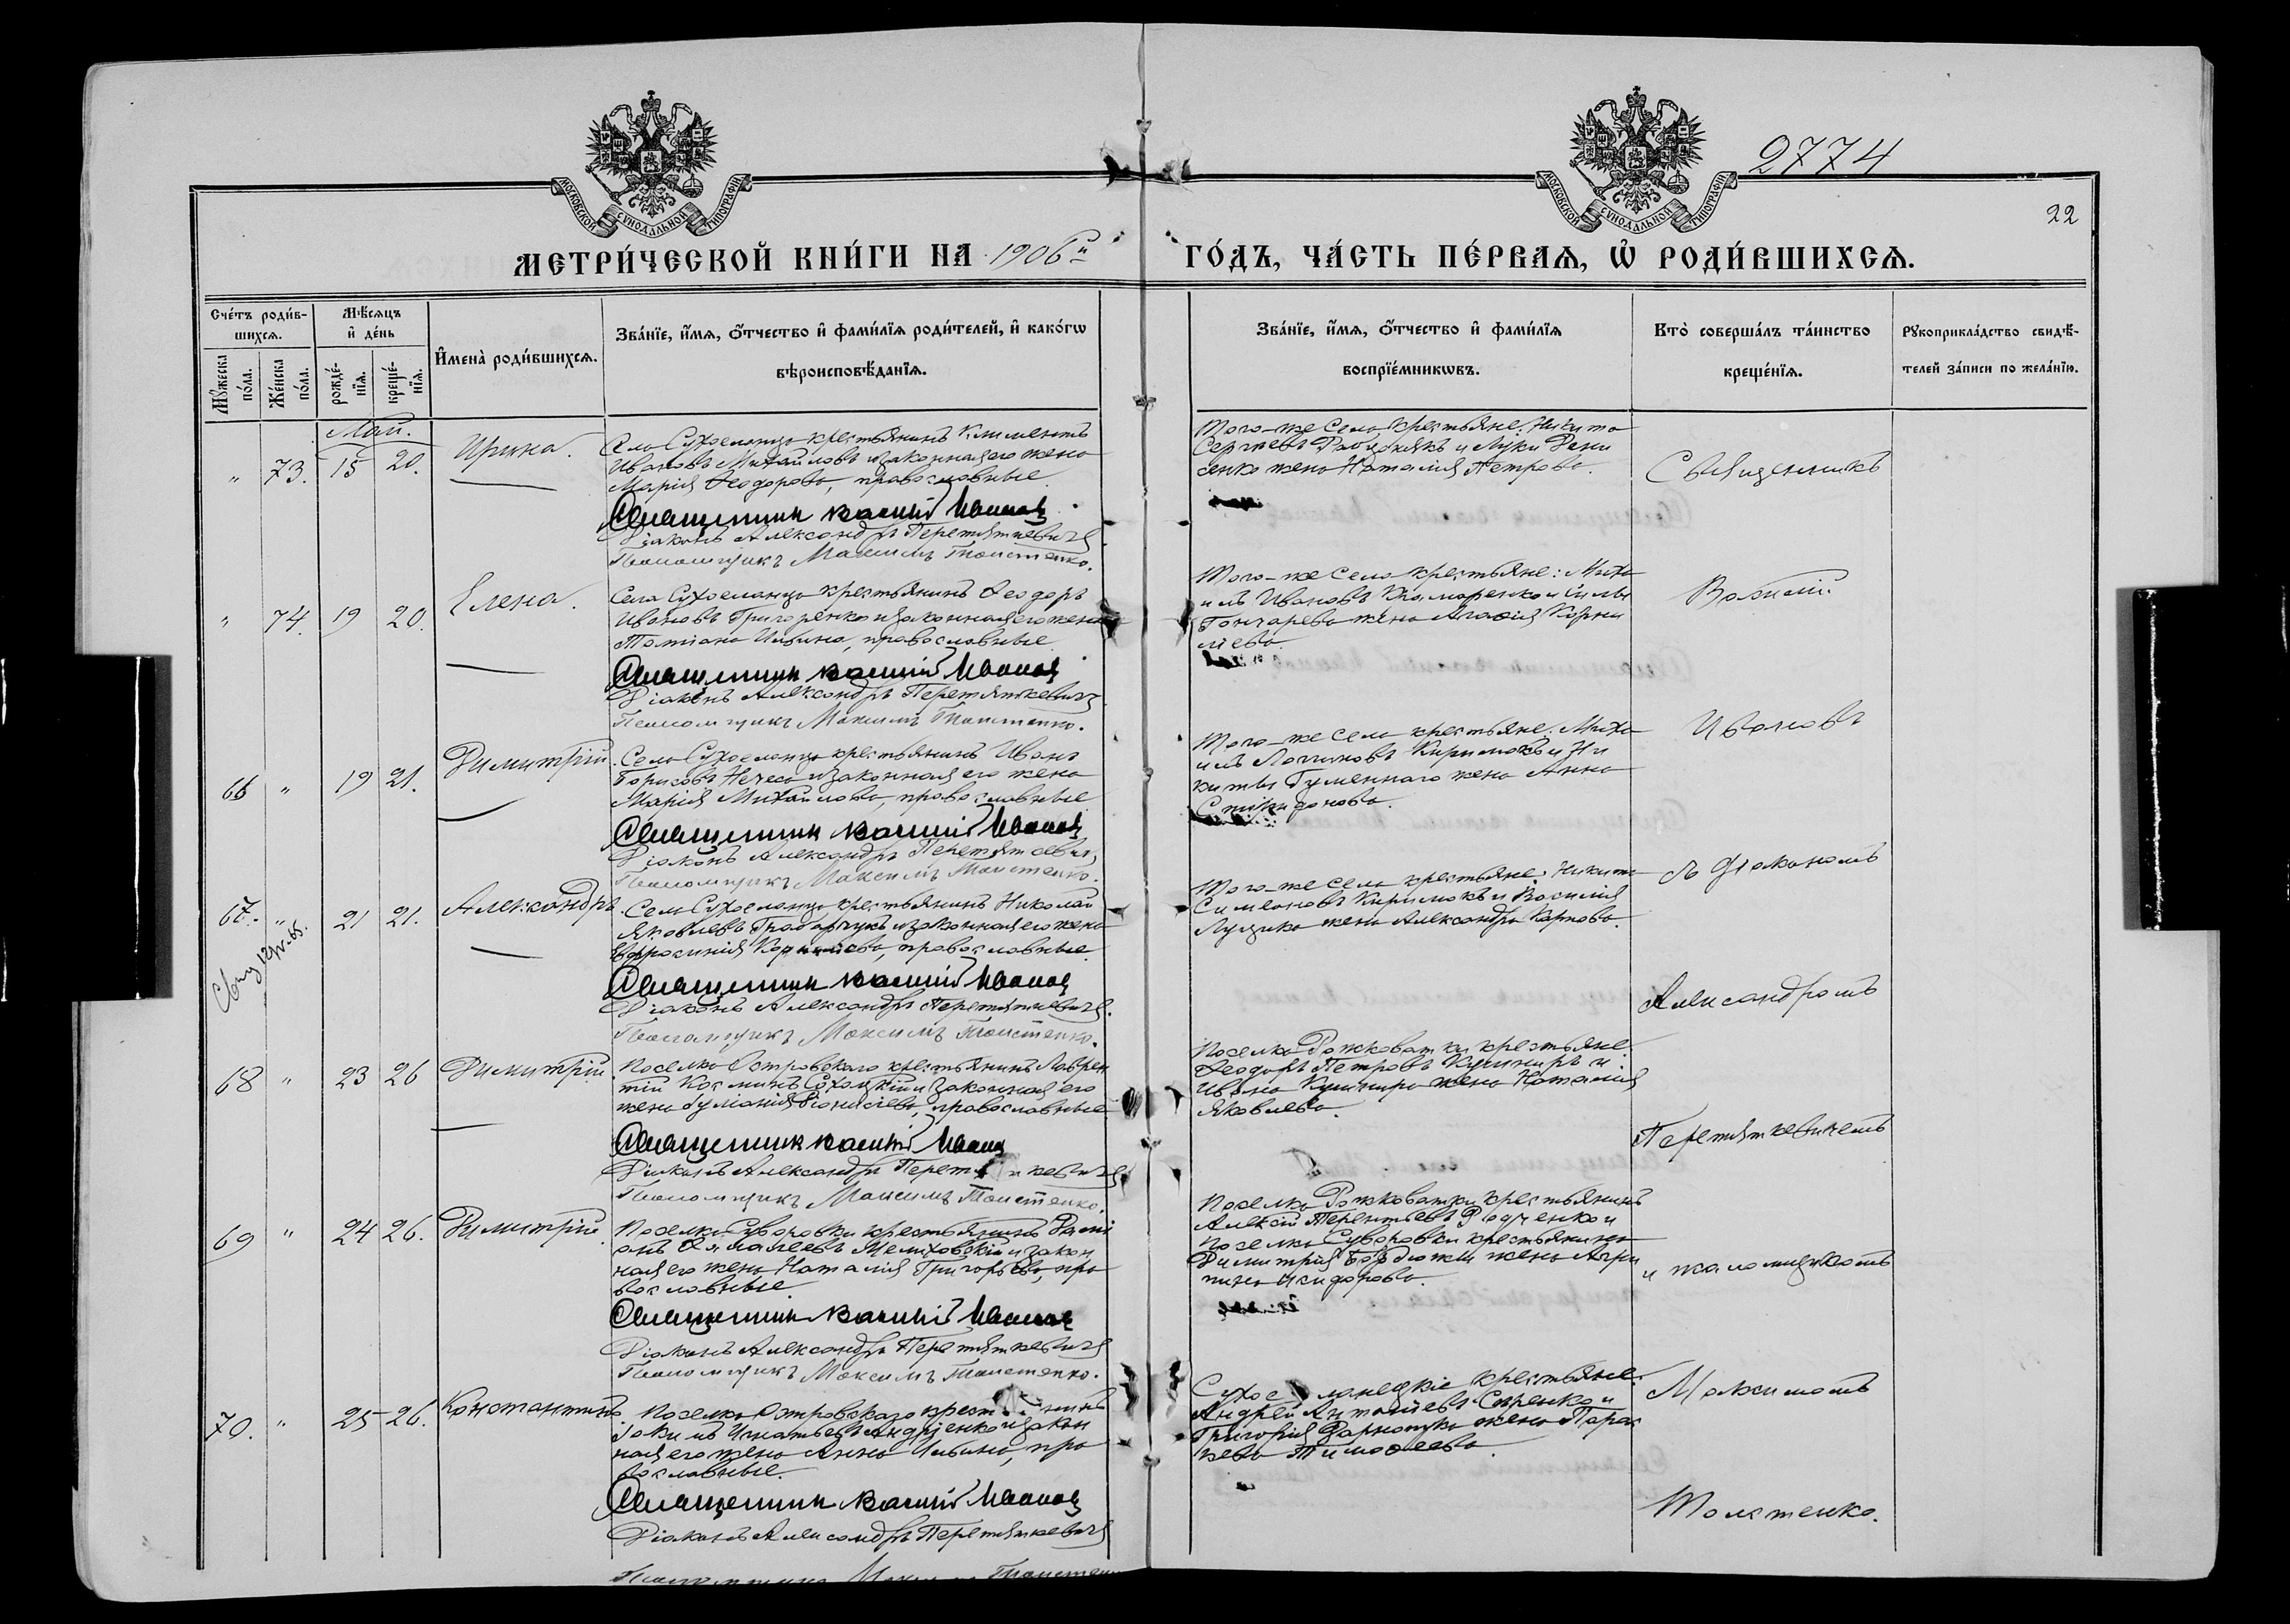 МОСКОВСКОЙ СѴНОДАЛЬНОЙ ТИПОГРАФІИ
МОСКОВСКОЙ СѴНОДАЛЬНОЙ ТИПОГРАФІИ
2774
22
МЕТРИ́ЧЕСКОЙ КНИ́ГИ НА 1906й ГО́ДЪ, ЧА́СТЬ ПЕ́РВАЯ, Ѡ РОДИ́ВШИХСЯ.
Сче́тъ роди́в-
шихся.
Мѣ́сяцъ
и де́нь
Мꙋ́жеска по́ла.
Же́нска по́ла.
рожде́-
нїя.
креще́-
нїя.
Имена̀ роди́вшихся.
Зва́нїе, и́мя, ѻ҆́тчество и фами́лїя роди́телей, и како́гѡ
вѣроисповѣ́данїя.
Зва́нїе, и́мя, ѻ҆́тчество и фами́лїя
воспрїе́мникѡвъ.
Кто̀ соверша́лъ та́инство
креще́нїя.
Рꙋкоприкла́дство свидѣ́-
телей за́писи по жела́нїю.
Май.
" 73. 15 20. Ирина.
Села Сухоеланца крестьянинъ Климентъ
Ивановъ Михайловъ и законная его жена
Марія Ѳеодорова, православные.
Священник Василій Иванов
Діаконъ Александръ Перетяткевичъ
Псаломщикъ Максимъ Толстенко.
Того-же села крестьяне: Никита
Сергѣевъ и Луки Дени
сенко жена Наталія Петрова.
Священникъ
" 74. 19 20. Елена.
Села Сухоеланца крестьянинъ Ѳеодоръ
Ивановъ Григоренко и законная его жена
Татіана Ильина, православные.
Священник Василій Иванов
Діаконъ Александръ Перетяткевичъ
Псаломщикъ Максимъ Толстенко.
Того-же села крестьяне: Миха
илъ Ивановъ Комаренко и
Гончарева жена Агафія Корни
ліева.
Василій
66 " 19 21. Димитрій.
Села Сухоеланца крестьянинъ Иванъ
Борисовъ Нечеса и законная его жена
Марія Михайлова, православные
Священник Василій Иванов
Діаконъ Александръ Перетяткевичъ
Псаломщикъ Максимъ Толстенко.
Того-же села крестьяне: Миха
илъ Логиновъ Кирилюкъ и Ни
киты Гуменнаго жена Анна
Спиридонова.
Ивановъ
67. " 21 21. Александръ.
Села Сухоеланца крестьянинъ Николай
Яковлевъ Грабарчукъ и законная его жена
Евфросинія Корниліева, православные.
Священник Василій Иванов
Діаконъ Александръ Перетяткевичъ.
Псаломщикъ Максимъ Толстенко.
Того-же села крестьяне: Никита
Симеоновъ Кирилюкъ и Василія
Луцика жена Александра Карпова.
съ Діакономъ
Александромъ
68 " 23 26 Димитрій.
Поселка Островскаго крестьянинъ Лаврен
тій Косминъ и законная его
жена Іуліанія Діонисіева, православные
Священник Василій Иванов
Діаконъ Александръ Перетяткевичъ
Псаломщикъ Максимъ Толстенко.
Поселка Рожковатки крестьяне:
Ѳеодоръ Петровъ Кушниръ и
Ивана Кушнира жена Наталія
Яковлева.
Перетяткевичемъ
69 " 24 26. Димитрій.
Поселка Суворовки крестьянинъ Дамі
анъ Меліховскій и закон
ная его жена Наталія Григорьева, пра
вославные.
Священник Василій Иванов
Діаконъ Александръ Перетяткевичъ
Псаломщикъ Максимъ Толстенко.
Поселка Рожковатки крестьянинъ
Алексій Терентьевъ и
поселка Суворовки крестьянина
Димитрія жена Агри
пина Исидорова.
и псаломщикомъ
70. " 25 26. Константинъ.
Поселка Островскаго крестьянинъ
Іоакимъ Игнатьевъ и закон
ная его жена Анна Ильина, пра
вославные.
Священник Василій Иванов
Діаконъ Александръ Перетяткевичъ
Псаломщикъ Максимъ Толстенко
Сухоеланецкіе крестьяне:
Андрей и
Григорія жена Парас
кева Тимоѳеева.
Максимомъ
Толстенко.